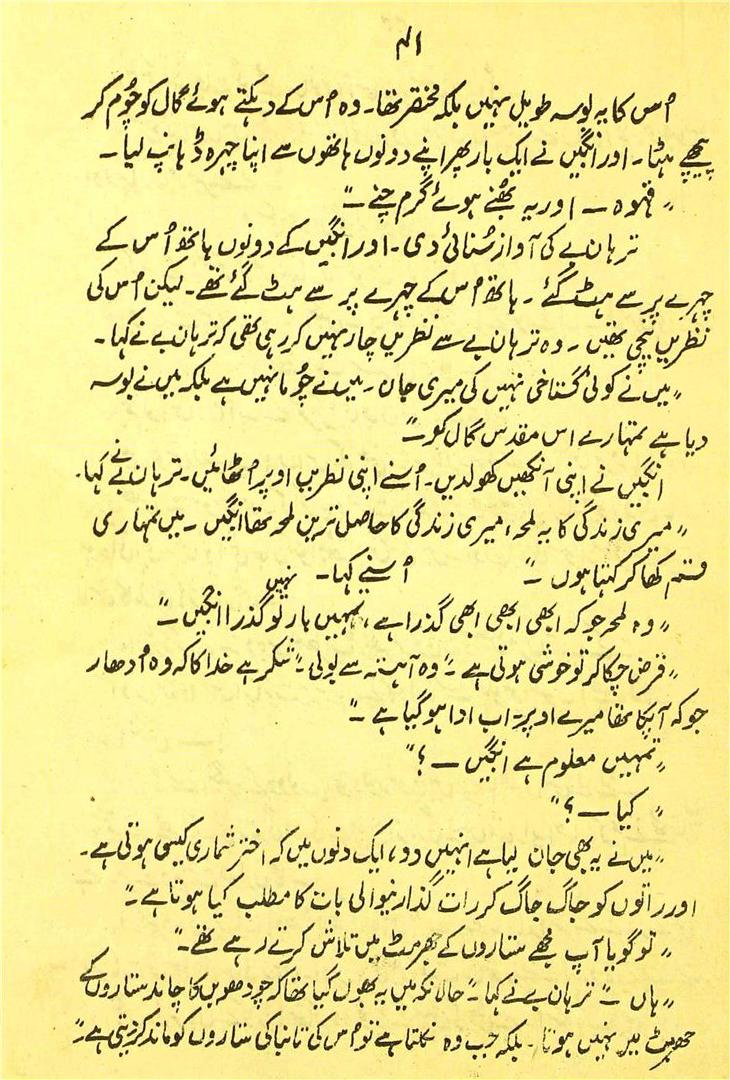 ۸۱
اُس کا یہ بوسہ طویل نہیں بلکہ مختصر تھا۔ وہ اُس کے دہکتے ہوئے گال کو چُوم کر
پیچھے ہٹا۔ اور انگیں نے ایک بار پھر اپنے دونوں ہاتھوں سے اپنا چہرہ ڈھانپ لیا۔
"قہوہ — اور یہ بُھنے ہوئے گرم چنے —"
ترہان بے کی آواز سُنائی دی۔ اور انگیں کے دونوں ہاتھ اُس کے
چہرے پر سے ہٹ گئے۔ ہاتھ اُس کے چہرے پر سے ہٹ گئے تھے۔ لیکن اُس کی
نظریں نیچی تھیں۔ وہ ترہان بے سے نظریں چار نہیں کر رہی تھی کہ ترہان بے نے کہا۔
"میں نے کوئی گستاخی نہیں کی میری جان۔ میں نے چُوما نہیں ہے بلکہ میں نے بوسہ
دیا ہے تمہارے اس مقدس گال کو —"
انگیں نے اپنی آنکھیں کھولدیں۔ اُسنے اپنی نظریں اوپر اُٹھائیں۔ ترہان بے نے کہا۔
"میری زندگی کا یہ لمحہ، میری زندگی کا حاصل ترین لمحہ تھا انگیں۔ میں تمہاری
قسم کھا کر کہتا ہوں —" اُسنے کہا۔ نہیں
"وہ لمحہ جو کہ ابھی ابھی ابھی گذرا ہے، تمہیں بار تو گذرا انگیں —"
"قرض چکا کر تو خوشی ہوتی ہے —" وہ آہستہ سے بولی۔ "شکر ہے خدا کا کہ وہ اُدھار
جو کہ آپکا تھا میرے اوپر، اب ادا ہو گیا ہے —"
"تمہیں معلوم ہے انگیں — ؟"
"کیا — ؟"
"میں نے یہ بھی جان لیا ہے انہیں دو، ایک دنوں میں کہ اختر شماری کیسی ہوتی ہے۔
اور راتوں کو جاگ جاگ کر رات گذارنیوالی بات کا مطلب کیا ہوتا ہے —"
"تو گویا آپ مجھے ستاروں کے جھرمٹ میں تلاش کرتے رہے تھے —"
"ہاں —" ترہان بے نے کہا — "حالانکہ میں یہ بھول گیا تھا کہ چودھویں کا چاند ستاروں کے
جھرمٹ میں نہیں ہوتا۔ بلکہ جب وہ نکلتا ہے تو اُس کی تابناکی ستاروں کو ماند کر دیتی ہے —"